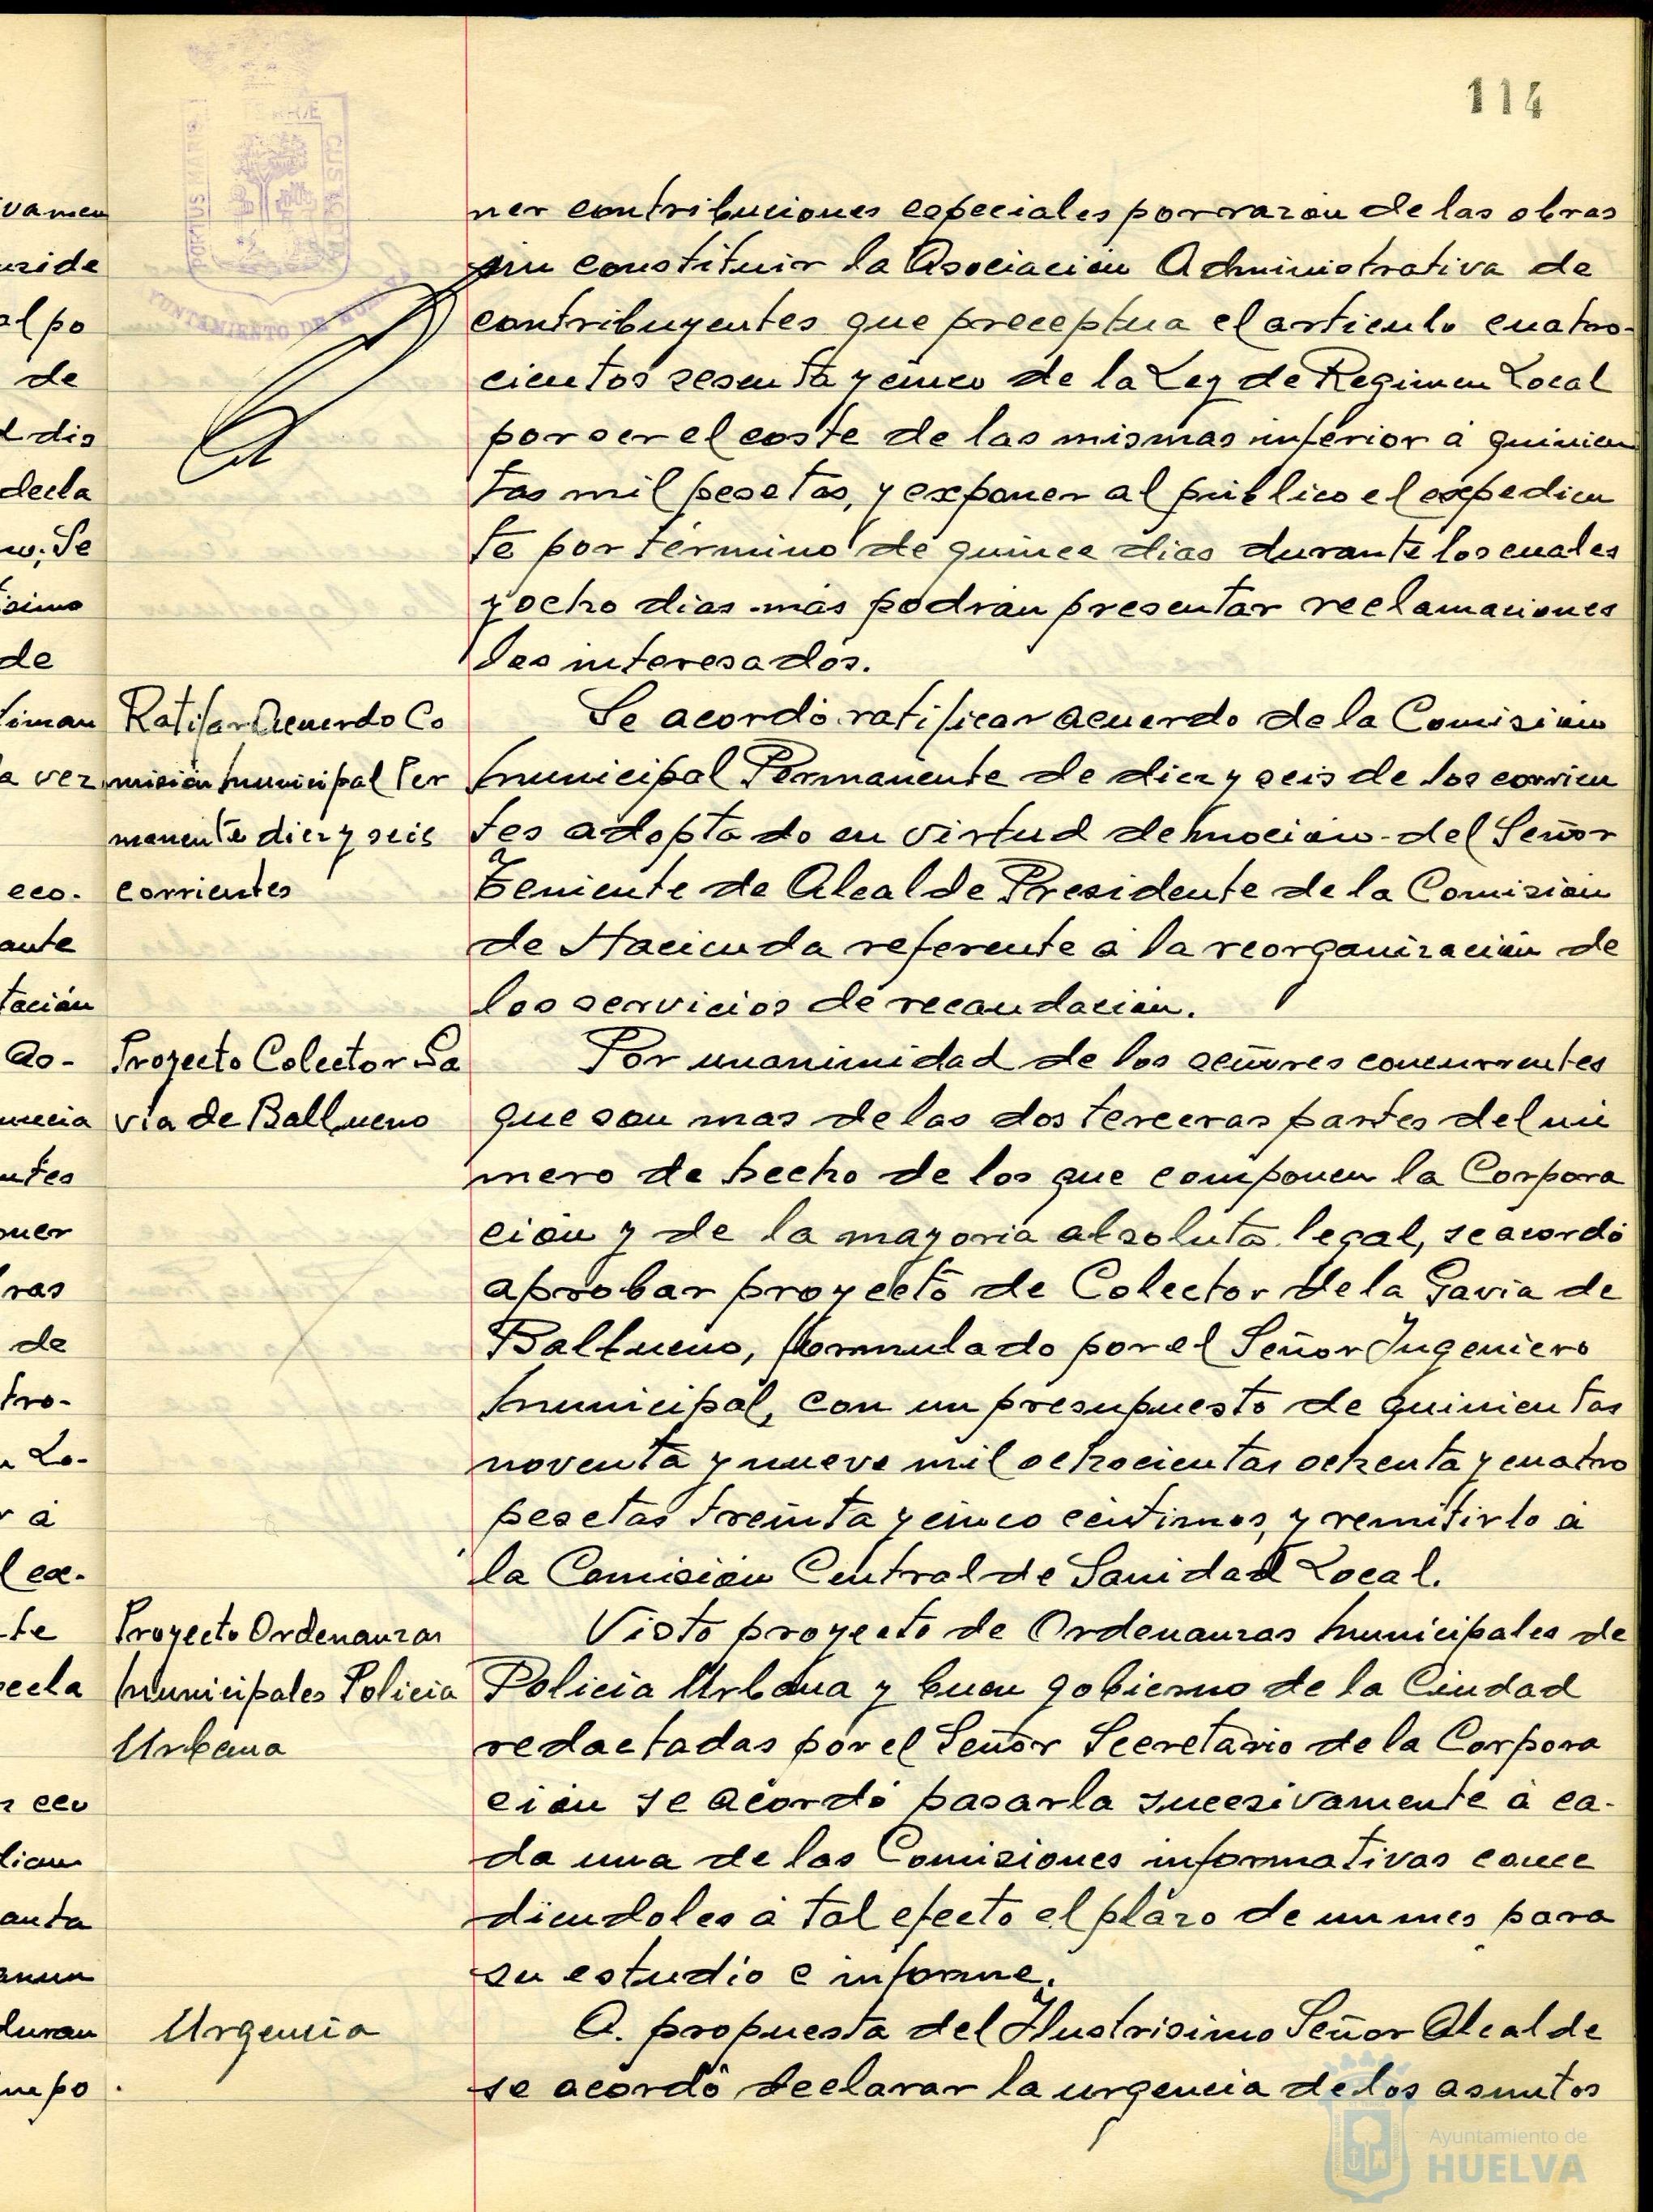 114
ner contribuciones especiales por razón de las obras
sin constituir la Asociación Administrativa de
contribuyentes que preceptua el articulo cuatro-
cientos sesenta y cinco de la Ley de Regimen Local
por ser el coste de las mismas inferior á quinien
tas mil pesetas, y exponer al público el expedien
te por término de quince dias durante los cuales
y ocho dias mas podrán presentar reclamaciones
los interesados.
Ratifar Acuerdo Co
misión Municipal Per
manente diez y seis
corrientes
Se acordó ratificar acuerdo de la Comisión
Municipal Permanente de diez y seis de los corrien
tes adoptado en virtud de moción del Señor
Teniente de Alcalde Presidente de la Comisión
de Hacienda referente á la reorganización de
los servicios de recaudación.
Proyecto Colector Ga
via de Ballueno
Por unanimidad de los señores concurrentes
que son mas de las dos terceras partes del nú
mero de hecho de los que componen la Corpora
ción y de la mayoria absoluta legal, se acordó
aprobar proyecto de Colector de la Gavia de
Ballueno, formulado por el Señor Ingeniero
Municipal, con un presupuesto de quinientas
noventa y nueve mil ochocientas ochenta y cuatro
pesetas treinta y cinco céntimos, y remitirlo á
la Comisión Central de Sanidad Local.
Proyecto Ordenanzas
Municipales Policia
Urbana
Visto proyecto de Ordenanzas Municipales de
Policia Urbana y buen gobierno de la Ciudad
redactadas por el Señor Secretario de la Corpora
ción se acordó pasarla sucesivamente á ca-
da una de las Comisiones informativas conce
diendoles á tal efecto el plazo de un mes para
su estudio e informe.
Urgencia
A propuesta del Ilustrisimo Señor Alcalde
se acordó declarar la urgencia de los asuntos
Ayuntamiento de
HUELVA